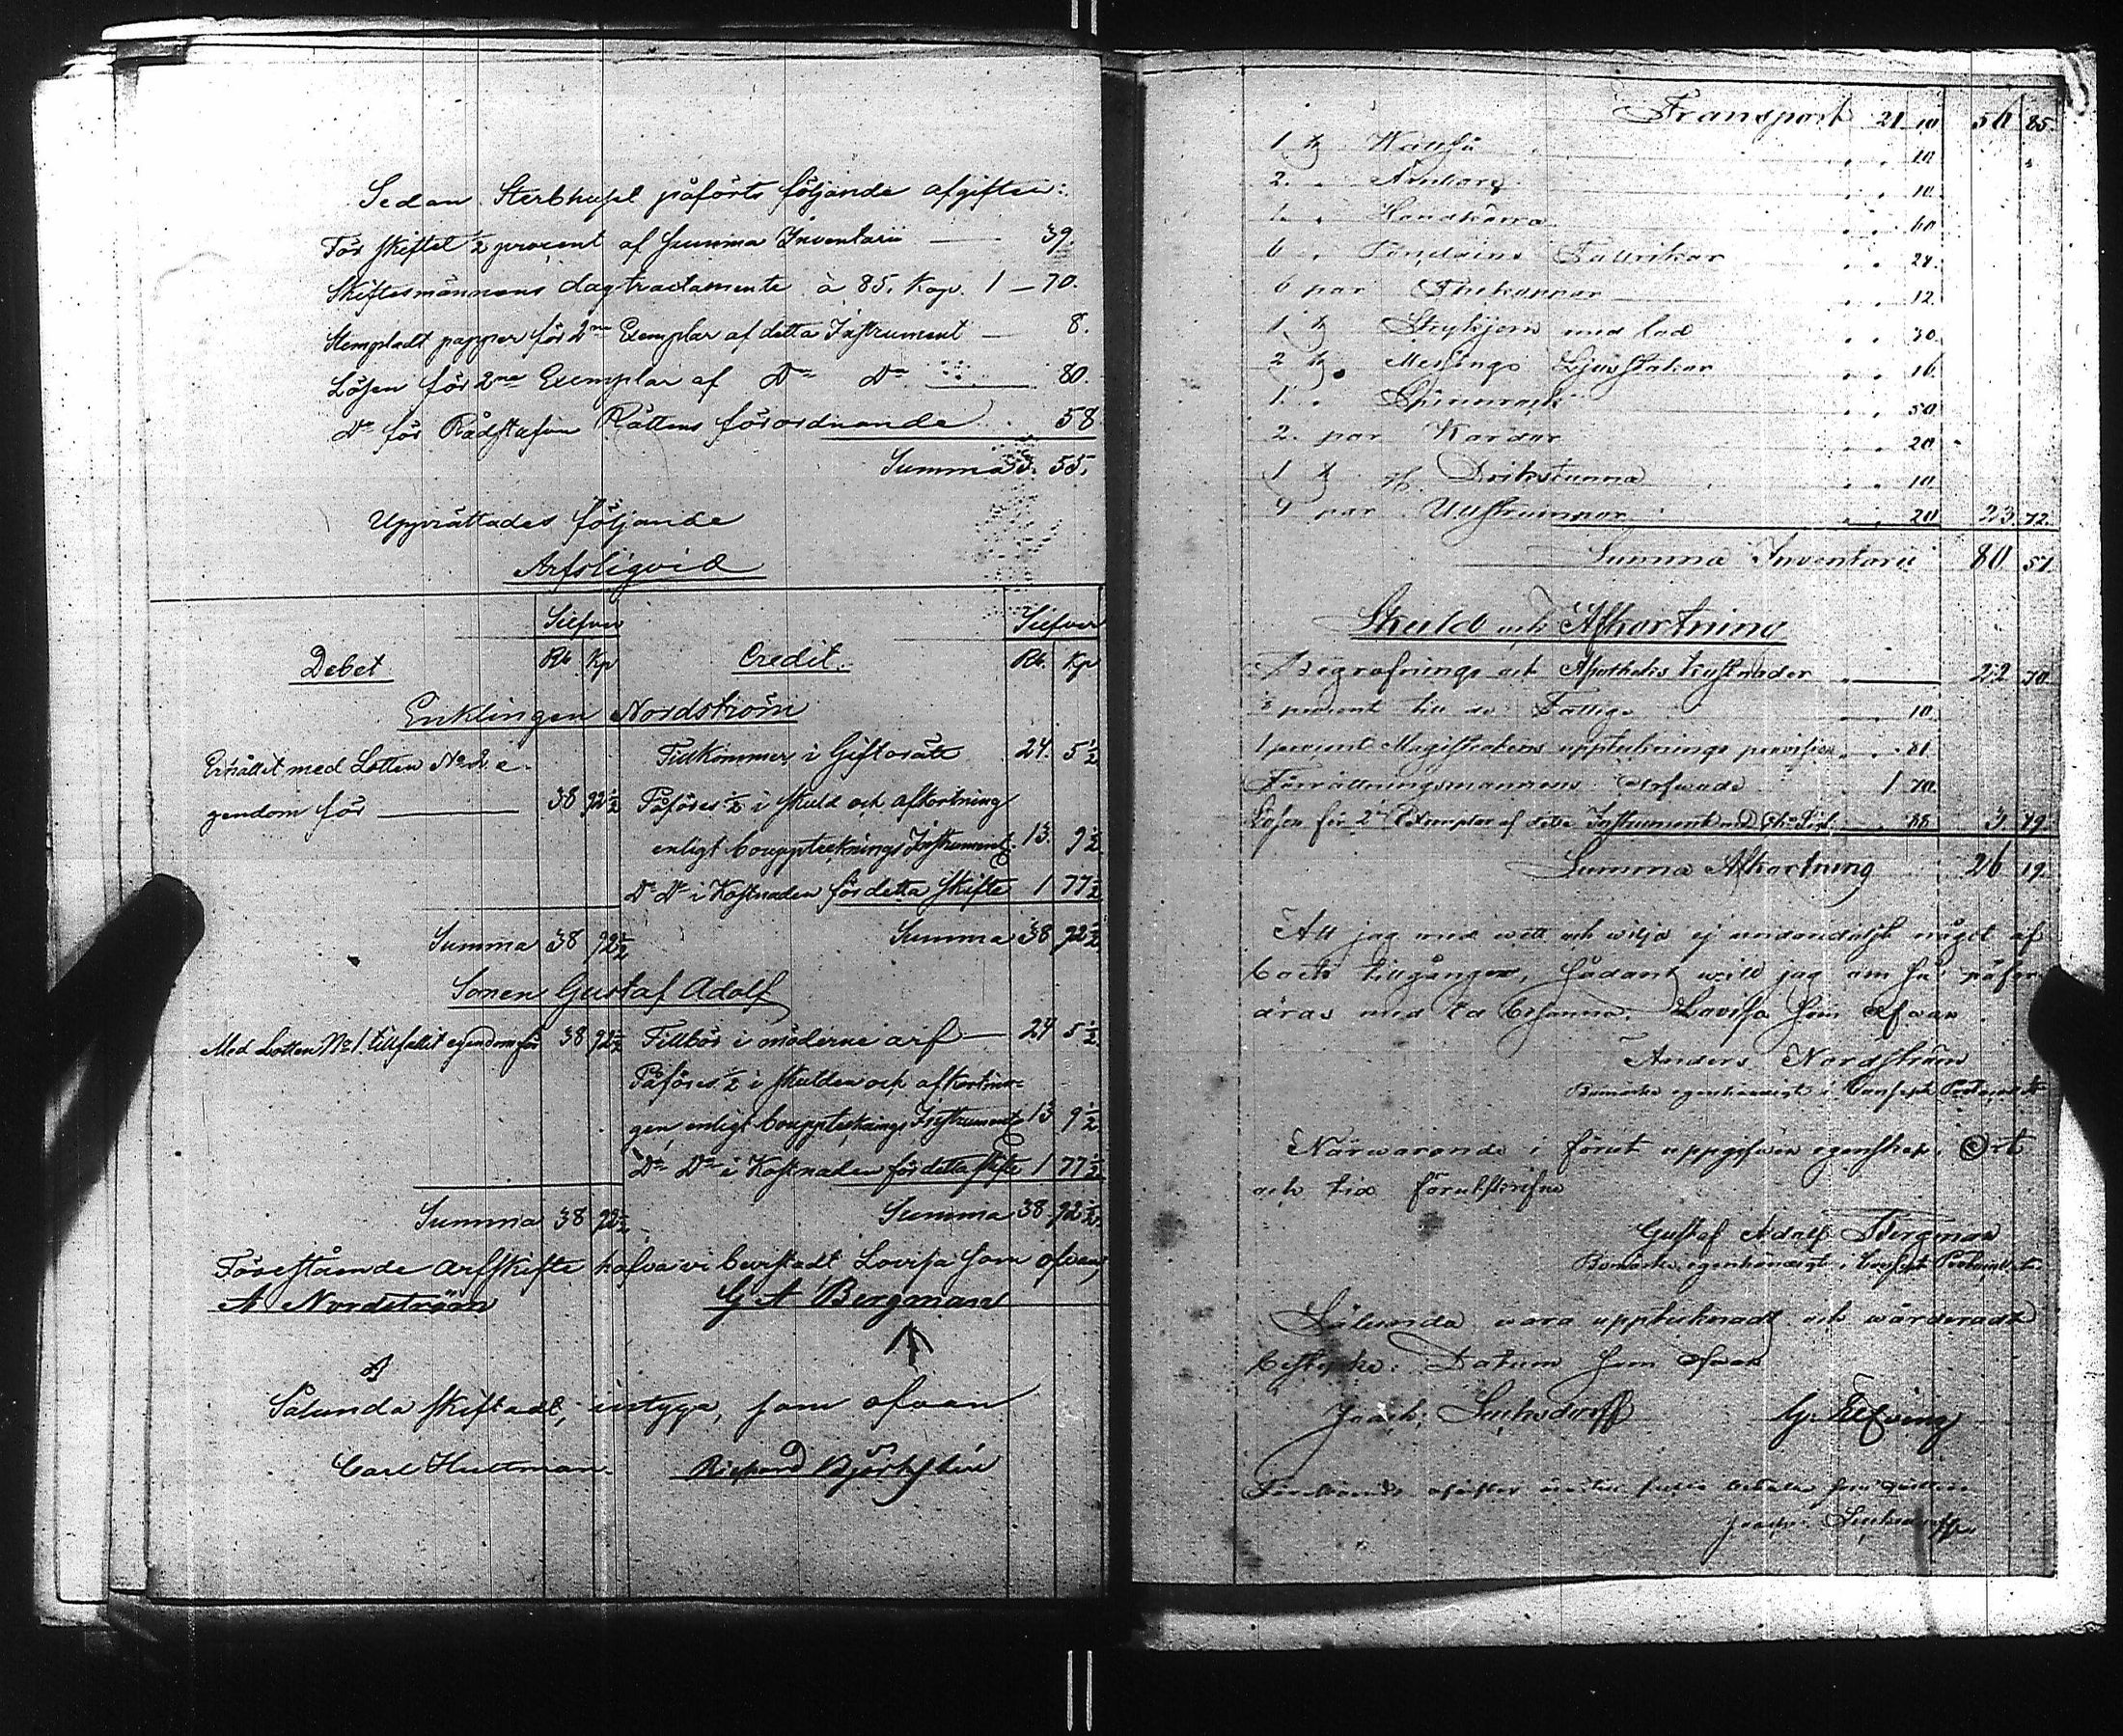 Sedan Sterbhuset påförts följande afgifter:
För skiftet ½ procent af Summa Inventarii — 39.
Skiftesmännens dagtractamente à 85. Kop. 1 — 70.
Stempladt papper för 2ne Exemplar af detta Instrument — 8.
Lösen för 2ne Exemplar af Do Do — 80.
Do för Rådstufvu Rättens förordnande 58
Summa 3. 55.
Upprättades följande
Arfsliqvid
Silfver Silfver
Debet Rbl. Kp Credit. Rbl. Kp
Enklingen Nordström
Erhållit med Lotten No 2. e- Tillkommer i Giftorätt 24. 5½
gendom för — 38 92½ Påföres ½ i skuld och afkortning
enligt bouppteckningsInstrument 13. 9½
Do Do i Kostnaden för detta skifte 1 77½
Summa 38 92½ Summa 38 92½
Sonen Gustaf Adolf
Med Lotten No 1. tillfallit egendom för 38 92½ Tillhör i möderne arf — 24 5½
Påföres ½ i skulden och afkortnin-
gen, enligt bouppteckningsInstrument 13 9½
Do Do i Kostnaden för detta skifte 1 77½
Summa 38 92½ Summa 38 92½
Förestående arfskifte hafva vi bevistadt, Lovisa som ofvan,
A Nordström G A Bergman
Sålunda skiftadt, intyga, som ofvan
Carl Hultman. Richard Björkstén
Transport 21 10 56 85.
1 st
2. " 10.
1. " Handkärra 60
6 " Porslains Tallrikar 24.
6 par Thekoppar 12.
1 st Strykjern med lod 30.
2 st. Messings Ljusstakar 16
1. " Spinnrock 50
2. par Kardor 20
1 st Drickstunna 10
4 par Ullstrumpor 20 23. 72.
Summa Inventarii 80 57.
Skuld och Afkortning
Begrafnings och Apotheks kostnader 22 70
procent till de Fattige 10.
1 procent Magistratens uppteknings provision 81
Förrättningsmannens Arfvode 1 70.
Lösen för 2 Exemplar af detta Instrument 88 3. 49.
Summa Afkortning 26 19.
Att jag med wett och wilja ej undandoljt något af
boets tillgångar, sådant will jag om så påfor-
dras med Ed besanna. Lovisa som ofvan.
Anders Nordström
Bomärke egenhändigt i Concept Protocollet
Närwarande i förut uppgifven egenskap. Ort
och tid förutskrifne
Gustaf Adolf Bergman
Bomärke egenhändigt i Concept Protocollet.
Sålunda wara upptecknadt och wärderadt
betyga: Datum som ofvan
Joach: Suchsdorff G: Elfving
Joach: Suchsdorff